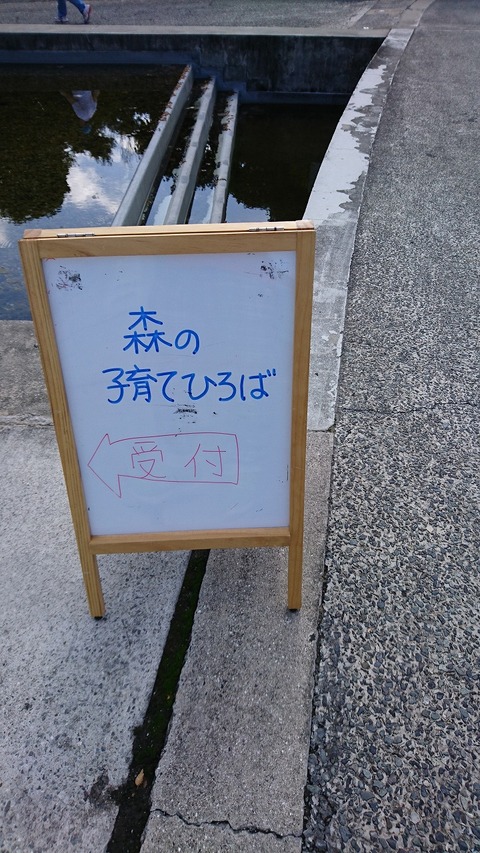 森の
子育てひろば
受付